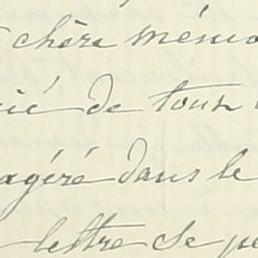 chère mémo
ié de tour
agéré dans le
lettre se pe